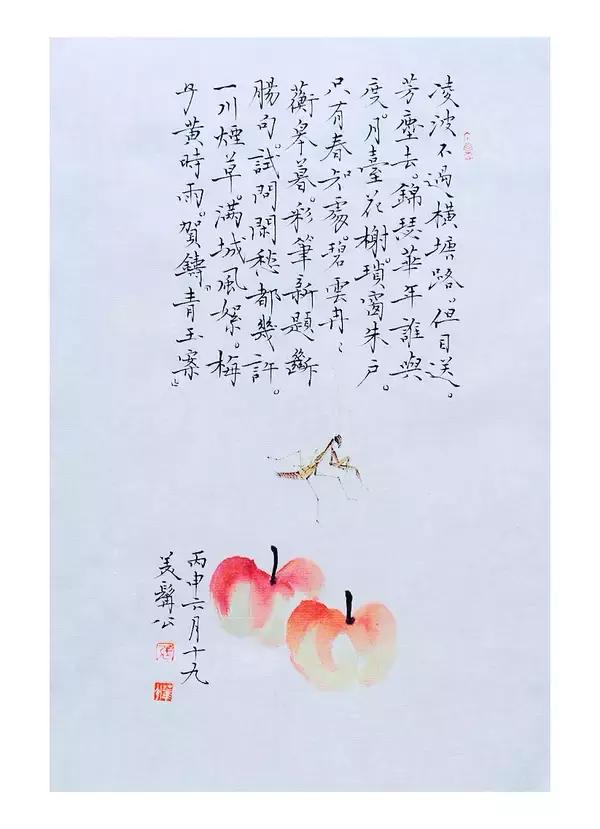 凌波不過橫塘路。但目送。
芳塵去。錦瑟華年誰與
度。月臺花榭。瑣窗朱戶。
只有春知處。碧雲冉〻
蘅皋暮。彩筆新題斷
腸句。試問閑愁都幾許。
一川煙草。滿城風絮。梅
子黃時雨。賀鑄。青玉案
丙申六月十九
美髯公